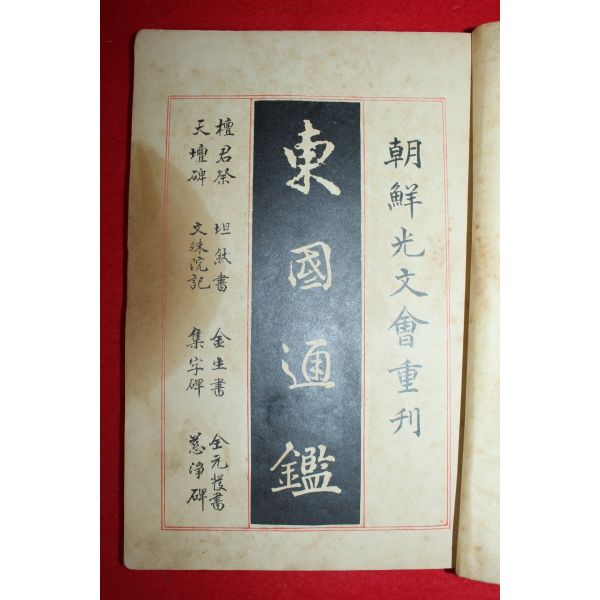 朝鮮光文會重刊
東國通鑑
檀君祭
天壇碑
坦然書
文殊院記
金生書
集字碑
全元發書
慈淨碑